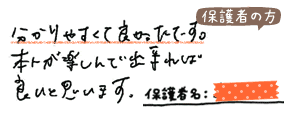 保護者の方
分かりやすくて良かったです。
本人が楽しんで出来れば
良いと思います。
保護者名: